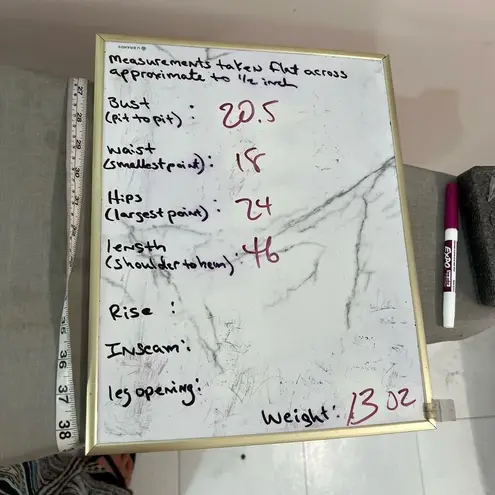 U BRANDS
measurements taken flat across
approximate to 1/2 inch
Bust
(pit to pit): 20.5
waist
(smallest point): 18
Hips
(largest point): 24
length
(shoulder to hem): 46
Rise :
Inseam:
leg opening:
Weight: 13 oz
EXPO
27
28
29
30
35
36
37
38